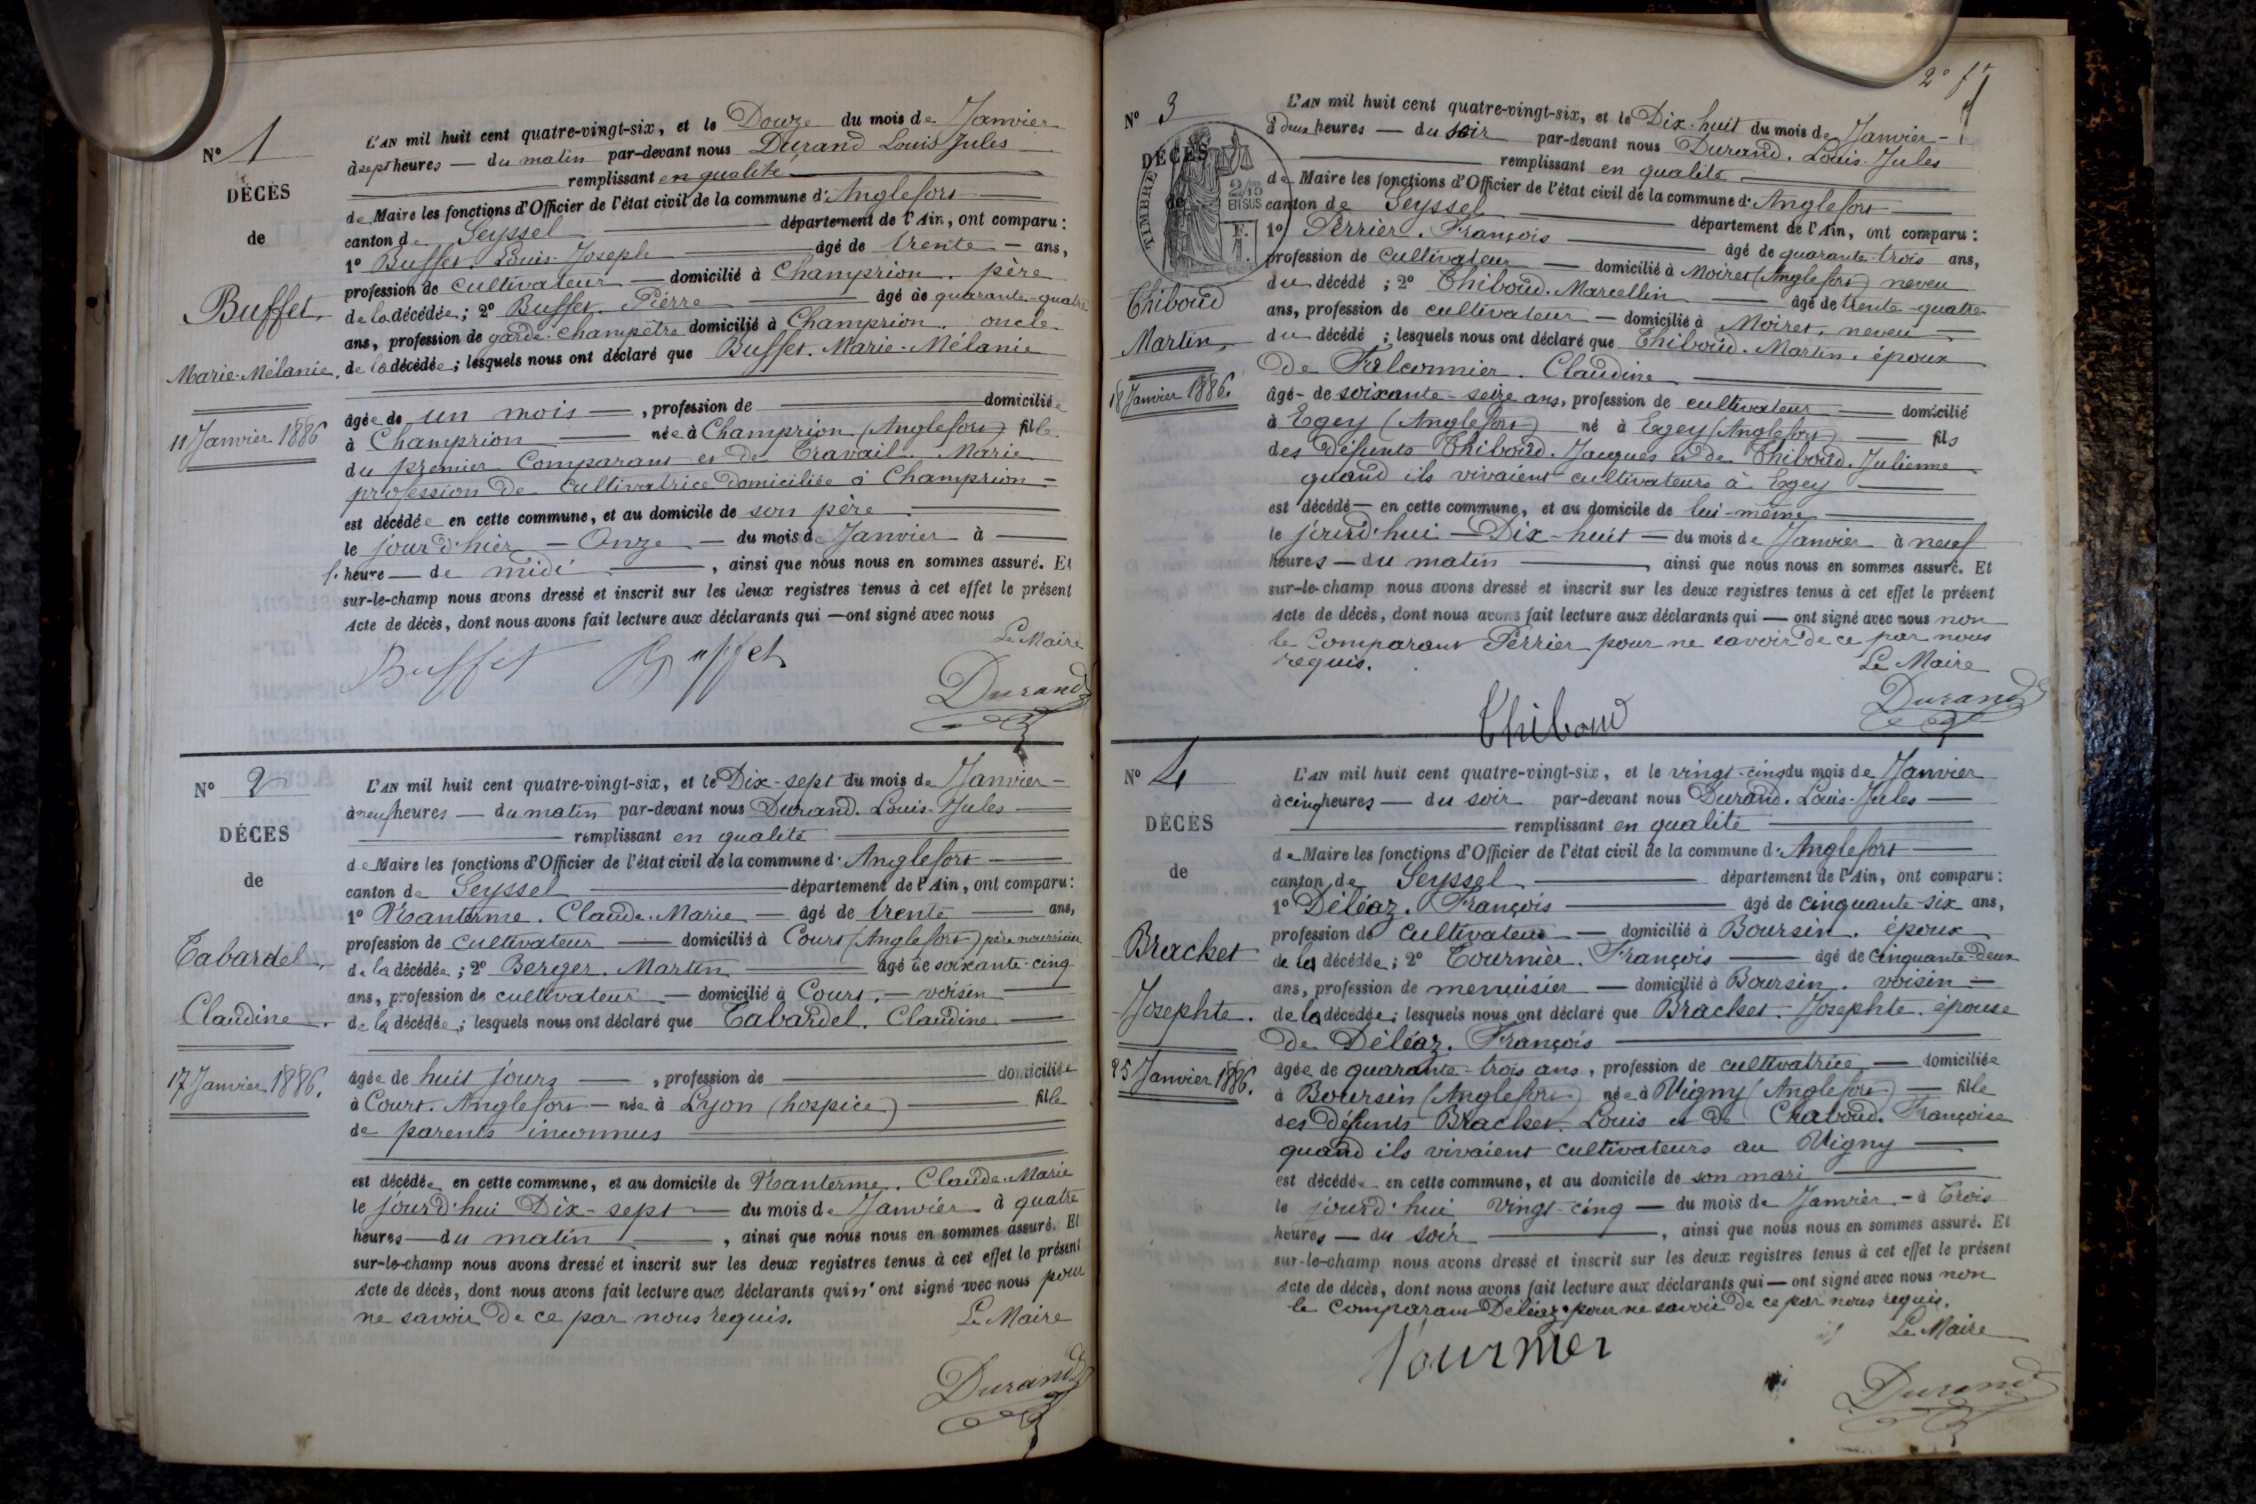 N° 1
DÉCÈS
de
Buffet,
Marie-Mélanie.
11 Janvier 1886
L'AN mil huit cent quatre-vingt-six, et le Douze du mois de Janvier
à sept heures — du matin par-devant nous Durand Louis Jules
remplissant en qualité
de Maire les fonctions d'Officier de l'état civil de la commune d'Anglefort
canton de Seyssel département de l'Ain, ont comparu :
1° Buffet. Louis Joseph âgé de trente — ans,
profession de cultivateur — domicilié à Champrion. père
de la décédée ; 2° Buffet. Pierre âgé de quarante-quatre
ans, profession de garde-champêtre domicilié à Champrion. oncle
de la décédée ; lesquels nous ont déclaré que Buffet. Marie-Mélanie
âgée de un mois — , profession de domiciliée
à Champrion née à Champrion (Anglefort) fille
du premier Comparant et de Travail. Marie
profession de cultivatrice domiciliée à Champrion —
est décédée en cette commune, et au domicile de son père
le jour d'hier — Onze — du mois de Janvier à —
l'heure — de midi , ainsi que nous nous en sommes assuré. Et
sur-le-champ nous avons dressé et inscrit sur les deux registres tenus à cet effet le présent
Acte de décès, dont nous avons fait lecture aux déclarants qui — ont signé avec nous
Le Maire
Buffet Buffet
Durand
N° 2
DÉCÈS
de
Tabardel,
Claudine.
17 Janvier 1886.
L'AN mil huit cent quatre-vingt-six, et le Dix-sept du mois de Janvier —
à neuf heures — du matin par-devant nous Durand. Louis-Jules —
remplissant en qualité
de Maire les fonctions d'Officier de l'état civil de la commune d'Anglefort
canton de Seyssel département de l'Ain, ont comparu :
1° Nanterme. Claude-Marie — âgé de trente — ans,
profession de cultivateur — domicilié à Court (Anglefort) père nourricier
de la décédée ; 2° Berger. Martin âgé de soixante-cinq
ans, profession de cultivateur — domicilié à Court. — voisin
de la décédée ; lesquels nous ont déclaré que Tabardel. Claudine —
âgée de huit jours — , profession de domiciliée
à Court. Anglefort — née à Lyon (hospice) fille
de parents inconnus
est décédée en cette commune, et au domicile de Nanterme. Claude-Marie
le jourd'hui Dix-sept — du mois de Janvier à quatre
heures — du matin , ainsi que nous nous en sommes assuré. Et
sur-le-champ nous avons dressé et inscrit sur les deux registres tenus à cet effet le présent
Acte de décès, dont nous avons fait lecture aux déclarants qui n'ont signé avec nous pour
ne savoir de ce par nous requis. Le Maire
Durand
2° ft
N° 3
DÉCÈS
de
TIMBRE
Thiboud
Martin,
18 Janvier 1886.
L'AN mil huit cent quatre-vingt-six, et le Dix-huit du mois de Janvier —
à deux heures — du soir par-devant nous Durand. Louis-Jules
remplissant en qualité
de Maire les fonctions d'Officier de l'état civil de la commune d'Anglefort
canton de Seyssel département de l'Ain, ont comparu :
1° Perrier. François âgé de quarante-trois ans,
profession de cultivateur — domicilié à Moiret (Anglefort) neveu
du décédé ; 2° Thiboud. Marcellin âgé de trente-quatre
ans, profession de cultivateur — domicilié à Moiret. neveu
du décédé ; lesquels nous ont déclaré que Thiboud. Martin. époux
de Falconnier. Claudine
âgé - de soixante-seize ans, profession de cultivateur — domicilié
à Egey (Anglefort) né à Egey (Anglefort) — fils
des défunts Thiboud. Jacques et de Thiboud. Julienne
quand ils vivaient cultivateurs à Egey
est décédé — en cette commune, et au domicile de lui-même
le jourd'hui — Dix-huit — du mois de Janvier à neuf
heures — du matin , ainsi que nous nous en sommes assuré. Et
sur-le-champ nous avons dressé et inscrit sur les deux registres tenus à cet effet le présent
Acte de décès, dont nous avons fait lecture aux déclarants qui — ont signé avec nous non
le Comparant Perrier pour ne savoir de ce par nous
requis. Le Maire
Thiboud
Durand
N° 4
DÉCÈS
de
Brachet
Josephte.
25 Janvier 1886.
L'AN mil huit cent quatre-vingt-six, et le vingt-cinq du mois de Janvier
à cinq heures — du soir par-devant nous Durand. Louis-Jules —
remplissant en qualité
de Maire les fonctions d'Officier de l'état civil de la commune d'Anglefort
canton de Seyssel département de l'Ain, ont comparu :
1° Déléaz. François âgé de cinquante-six ans,
profession de cultivateur — domicilié à Boursin. époux
de la décédée ; 2° Tournier. François — âgé de cinquante-deux
ans, profession de menuisier — domicilié à Boursin. voisin —
de la décédée ; lesquels nous ont déclaré que Brachet. Josephte. épouse
de Déléaz. François
âgée de quarante-trois ans, profession de cultivatrice — domiciliée
à Boursin (Anglefort) née à Vigny (Anglefort) — fille
des défunts Brachet. Louis et de Chaboud. Françoise
quand ils vivaient cultivateurs au Vigny
est décédée en cette commune, et au domicile de son mari
le jourd'hui vingt-cinq — du mois de Janvier — à Trois
heures — du soir , ainsi que nous nous en sommes assuré. Et
sur-le-champ nous avons dressé et inscrit sur les deux registres tenus à cet effet le présent
Acte de décès, dont nous avons fait lecture aux déclarants qui — ont signé avec nous non
le Comparant Déléaz pour ne savoir de ce par nous requis.
Le Maire
Tournier
Durand